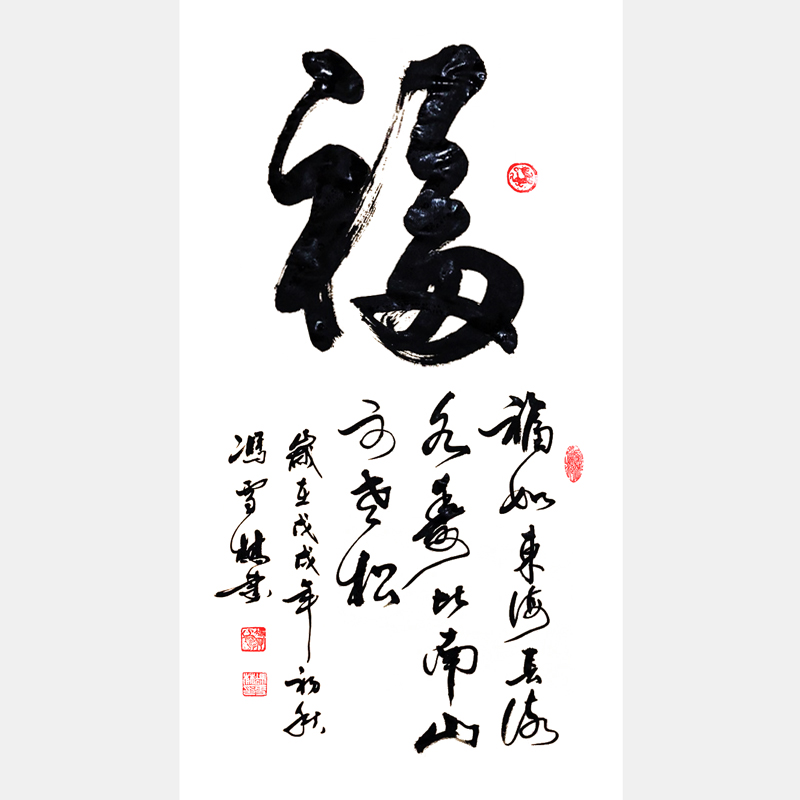 福
福如东海长流
水寿比南山
不老松
岁在戊戌年初秋
冯雪林书